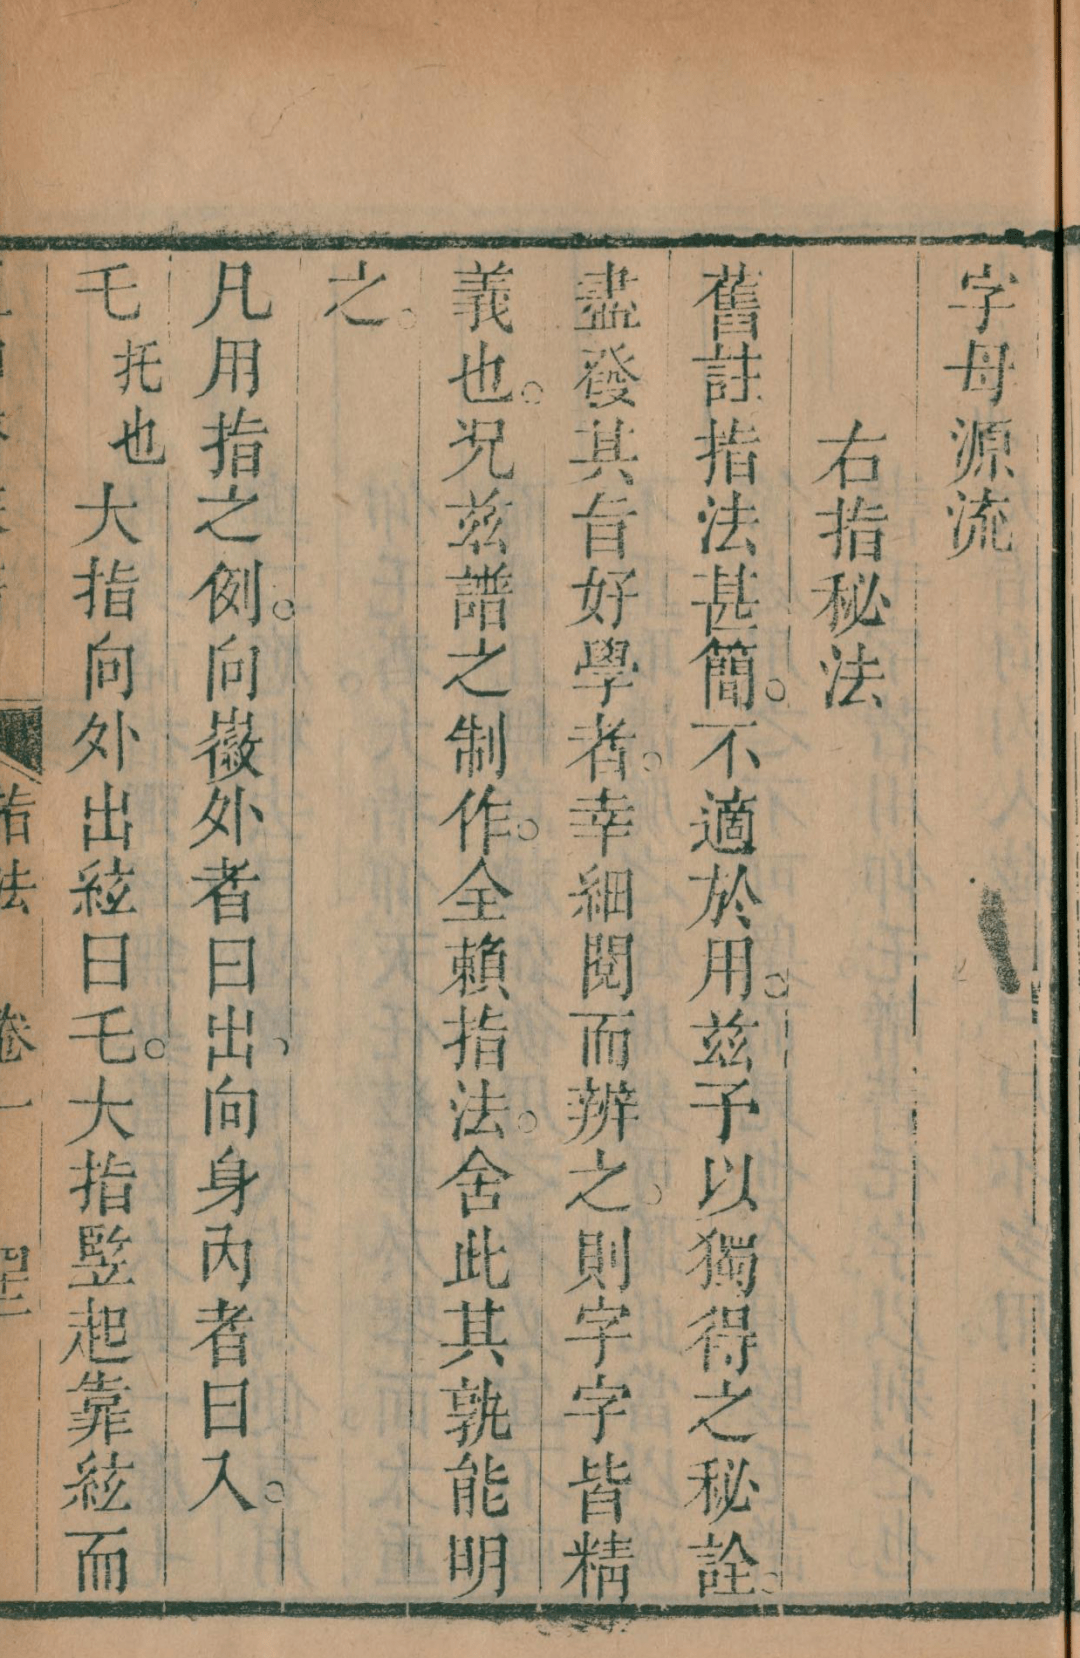 字母源流
右指秘法
舊註指法甚簡。不適於用。茲予以獨得之秘詮。
盡發其旨好學者。幸細閱而辨之。則字字皆精
義也。况茲譜之制作。全賴指法。舍此其孰能明
之。
凡用指之例。向徽外者曰出、向身內者曰入。
乇托也大指向外出絃曰乇。大指竪起靠絃而
指法 卷一